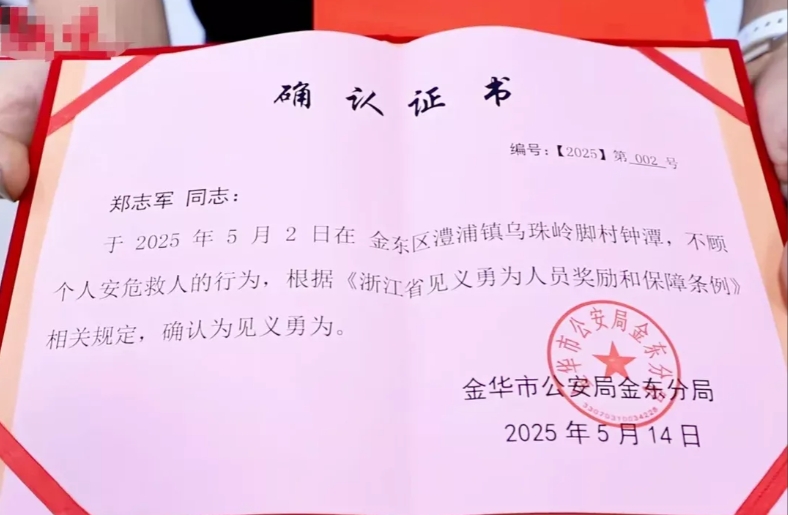 确认证书
编号：【2025】第 002 号
郑志军 同志：
于 2025 年 5 月 2 日在 金东区澧浦镇乌珠岭脚村钟潭，不顾
个人安危救人的行为，根据《浙江省见义勇为人员奖励和保障条例》
相关规定，确认为见义勇为。
金华市公安局金东分局
金华市公安局金东分局
2025 年 5 月 14 日